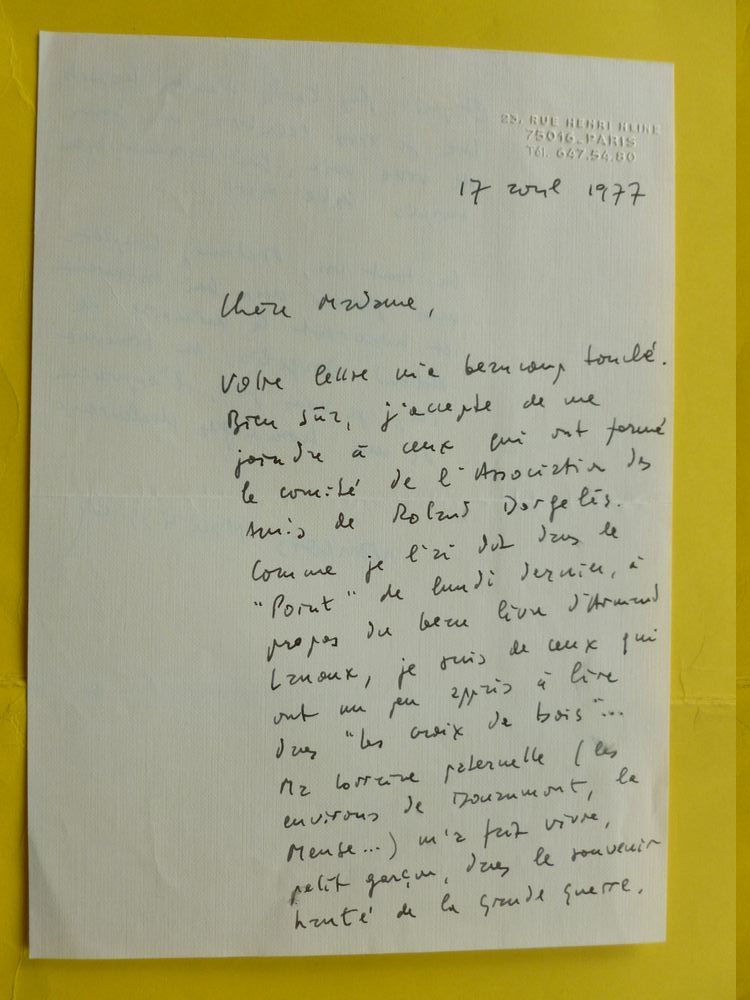 23, RUE HENRI HEINE
75016 - PARIS
Tél. 647.54.80
17 avril 1977
Chère Madame,
Votre lettre m'a beaucoup touché.
Bien sûr, j'accepte de me
joindre à ceux qui ont formé
le comité de l'Association des
Amis de Roland Dorgelès.
Comme je l'ai dit dans le
"Point" de lundi dernier, à
propos du beau livre d'Armand
Lanoux, je suis de ceux qui
ont un peu appris à lire
dans "les croix de bois"...
Ma Lorraine paternelle (les
environs de Douaumont, la
Meuse...) m'a fait vivre,
petit garçon, dans le souvenir
hanté de la grande guerre.